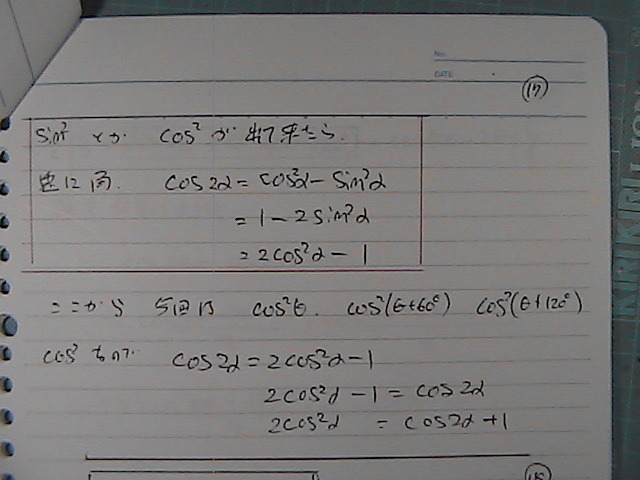 No.
DATE
⑰
sin² とか cos² が 出て来たら.
cos2α = cos²α - sin²α
= 1 - 2sin²α
= 2cos²α - 1
ここから 今回は cos²θ. cos²(θ+60°) cos²(θ+120°)
cos² なので. cos2α = 2cos²α - 1
2cos²α - 1 = cos2α
2cos²α = cos2α + 1